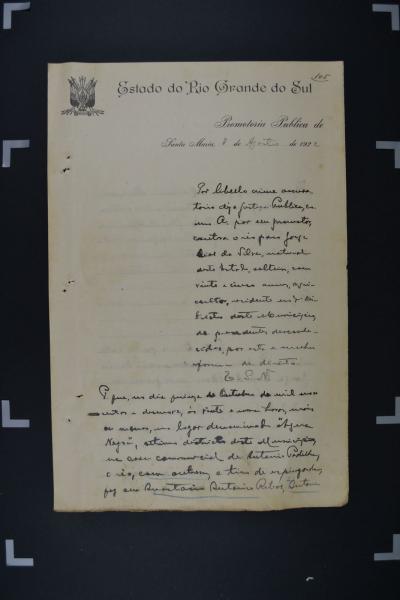 105
Estado do Rio Grande do Sul
Promotoria Publica de
Santa Maria, 8 de Agosto de 1922
Por libello crime accusa-
torio diz a Justiça Publica, co-
mo A. por seu promotor,
contra o réo preso Jorge
da Silva, natural
deste Estado, solteiro, com
vinte e cinco annos, agri-
cultor, residente no
districto deste Municipio,
de precedentes desconhe-
cidos, por esta e melhor
forma de direito
E. S. N.
P. que, no dia quinze de Outubro de mil nove
centos e dezenove, ás vinte e uma horas, mais
ou menos, no logar denominado
Negra", setimo districto deste Municipio,
na casa commercial de Antonio Padilha,
o réo, com outros, a tiros de espingarda,
fez em Antonio Ribas,